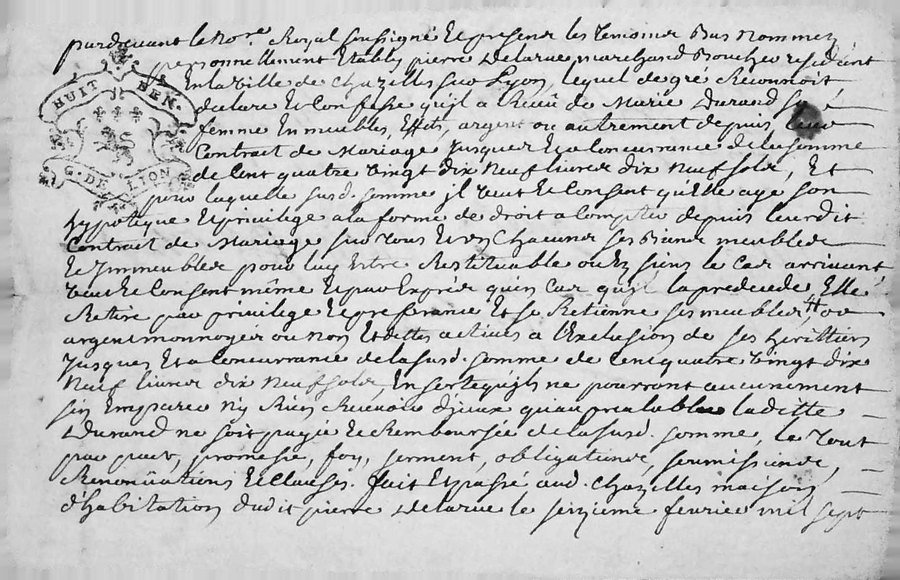 pardevant le No.re Royal soussigné Et presens les Temoins Bas Nommez
personnellement Etably pierre Delarue marchand Boucher residant
En la Ville de Chazelles sur Lyon, lequel de gré Reconnoit
declare Et Confesse quil a Receu de Marie Durand sa
femme En meubles, Effets, argent ou autrement depuis leur
Contract de Mariage Jusques Et a Concurrance de la somme
de Cent quatre Vingt dix Neuf livres dix Neuf sols, Et
pour laquelle susd. somme jl Veut Et Consent qu'Elle aye son
hypoteque Et privilege a la forme de droit a Compter depuis leurdit
Contract de Mariage sur Tous Et Un Chacuns ses Biens meubles
Et Jmmeubles pour luy Entre Restituable ou Es siens le Cas arrivant
Veut Et Consent même Et par Exprès qu'en Cas quil la predecede Elle
Retire par privilege Et preferance Et se Retienne ses meubles, # ou
argent monnoyés ou non Et dettes actives a l'Exclusion de ses herittiers
Jusques Et a Concurrance de la susd. somme de Cent quatre Vingt dix
Neuf livres dix Neuf sols, En sorte quijls ne pourront aucunement
sin Emparer N'y Rien Recevoir d'jceux qu'au prealable laditte
Durand ne soit payée Et Remboursée de la susd. somme, le Tout
par pact, promesse, foy, serment, obligations, soumissions,
Renonciations Et Clauses. fait Et passé aud. Chazelles maison
d'habitation dudit pierre Delarue le seizieme fevrier mil sept
HUIT DEN.
G. DE LION